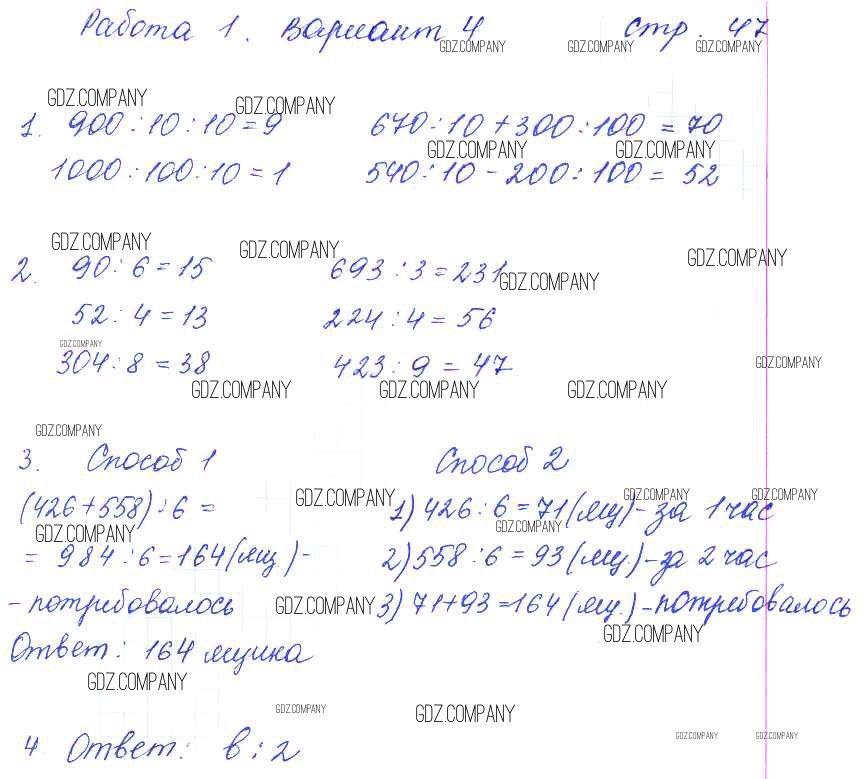 Работа 1. Вариант 4 стр. 47
GDZ.COMPANY GDZ.COMPANY GDZ.COMPANY
GDZ.COMPANY GDZ.COMPANY
1. 900:10:10=9 670:10+300:100=70
GDZ.COMPANY GDZ.COMPANY
1000:100:10=1 540:10-200:100= 52
GDZ.COMPANY GDZ.COMPANY GDZ.COMPANY
2. 90:6=15 693:3=231
GDZ.COMPANY
52:4=13 224:4=56
GDZ.COMPANY
304:8=38 423:9=47
GDZ.COMPANY
GDZ.COMPANY GDZ.COMPANY GDZ.COMPANY
GDZ.COMPANY
3. Способ 1 Способ 2
GDZ.COMPANY GDZ.COMPANY GDZ.COMPANY
(426+558):6= 1) 426:6=71(ящ)-за 1 час
GDZ.COMPANY GDZ.COMPANY
= 984:6=164(ящ.)- 2) 558:6=93(ящ.)-за 2 час
- потребовалось GDZ.COMPANY 3) 71+93=164(ящ.)-потребовалось
GDZ.COMPANY
Ответ: 164 ящика
GDZ.COMPANY
GDZ.COMPANY GDZ.COMPANY
GDZ.COMPANY GDZ.COMPANY
4 Ответ: в; г